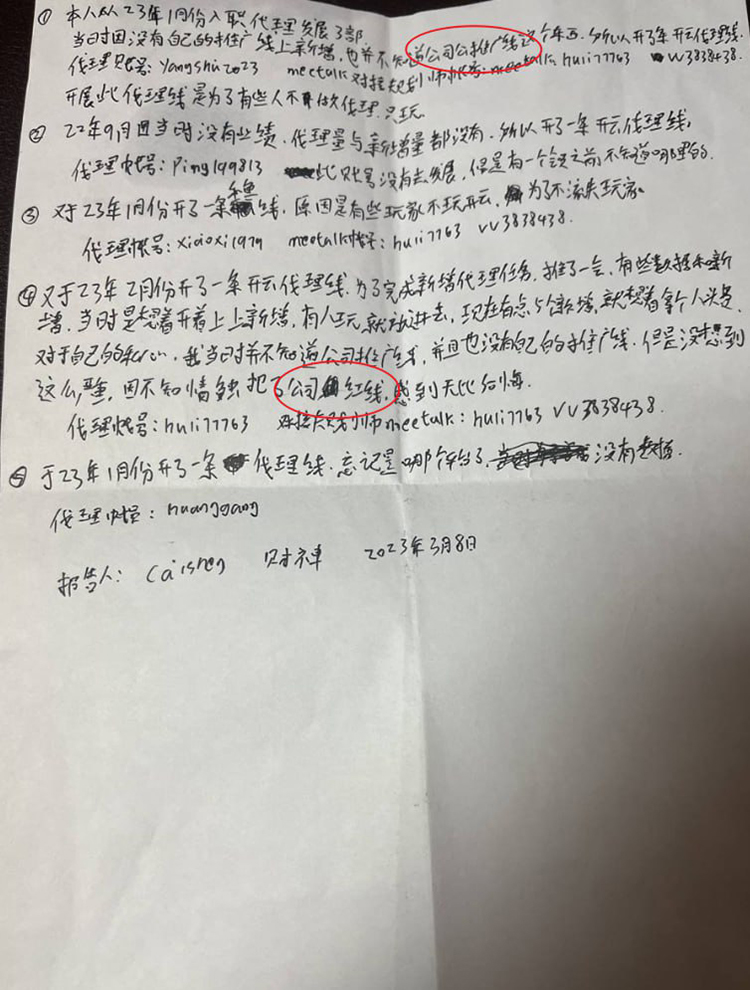 ① 本人从23年1月份入职代理发展3部
当时因没有自己的推广线上新增,也并不知道公司公推广线这个东西,所以开了条开云代理线
代理账号:yangshu2023 meetalk对接规划师帐号:meetalk huli7763 VV3838438.
开展此代理线是为了有些人不做代理只玩
② 22年9月因当时没有业绩,代理量与新增量都没有,所以开了一条开云代理线,
代理帐号:Ping199813 此账号没有去发展,但是有一个钱之前不知道哪里的.
③ 对于23年1月份开了一条线,原因是有些玩家不玩开云,为了不流失玩家
代理帐号:xiaoxi1979 meetalk帐号:huli7763 VV3838438.
④ 又于23年2月份开了一条开云代理线,为了完成新增代理任务,推了一会,有些数据和新
增,当时是想着开着上上新增,有人玩就放进去,现在有点新增,就想着拿个人头是
对于自己的,我当时并不知道公司推广线,并且也没有自己的推广线.但是没想到
这么严重,因不知情触犯了公司红线,感到无比后悔
代理帐号:huli77763 对接规划师meetalk:huli7763 VV3838438.
⑤ 于23年1月份开了一条代理线,忘记是哪个平台了,没有数据.
代理帐号:huanggang
报告人:Caishen 财神 2023年3月8日